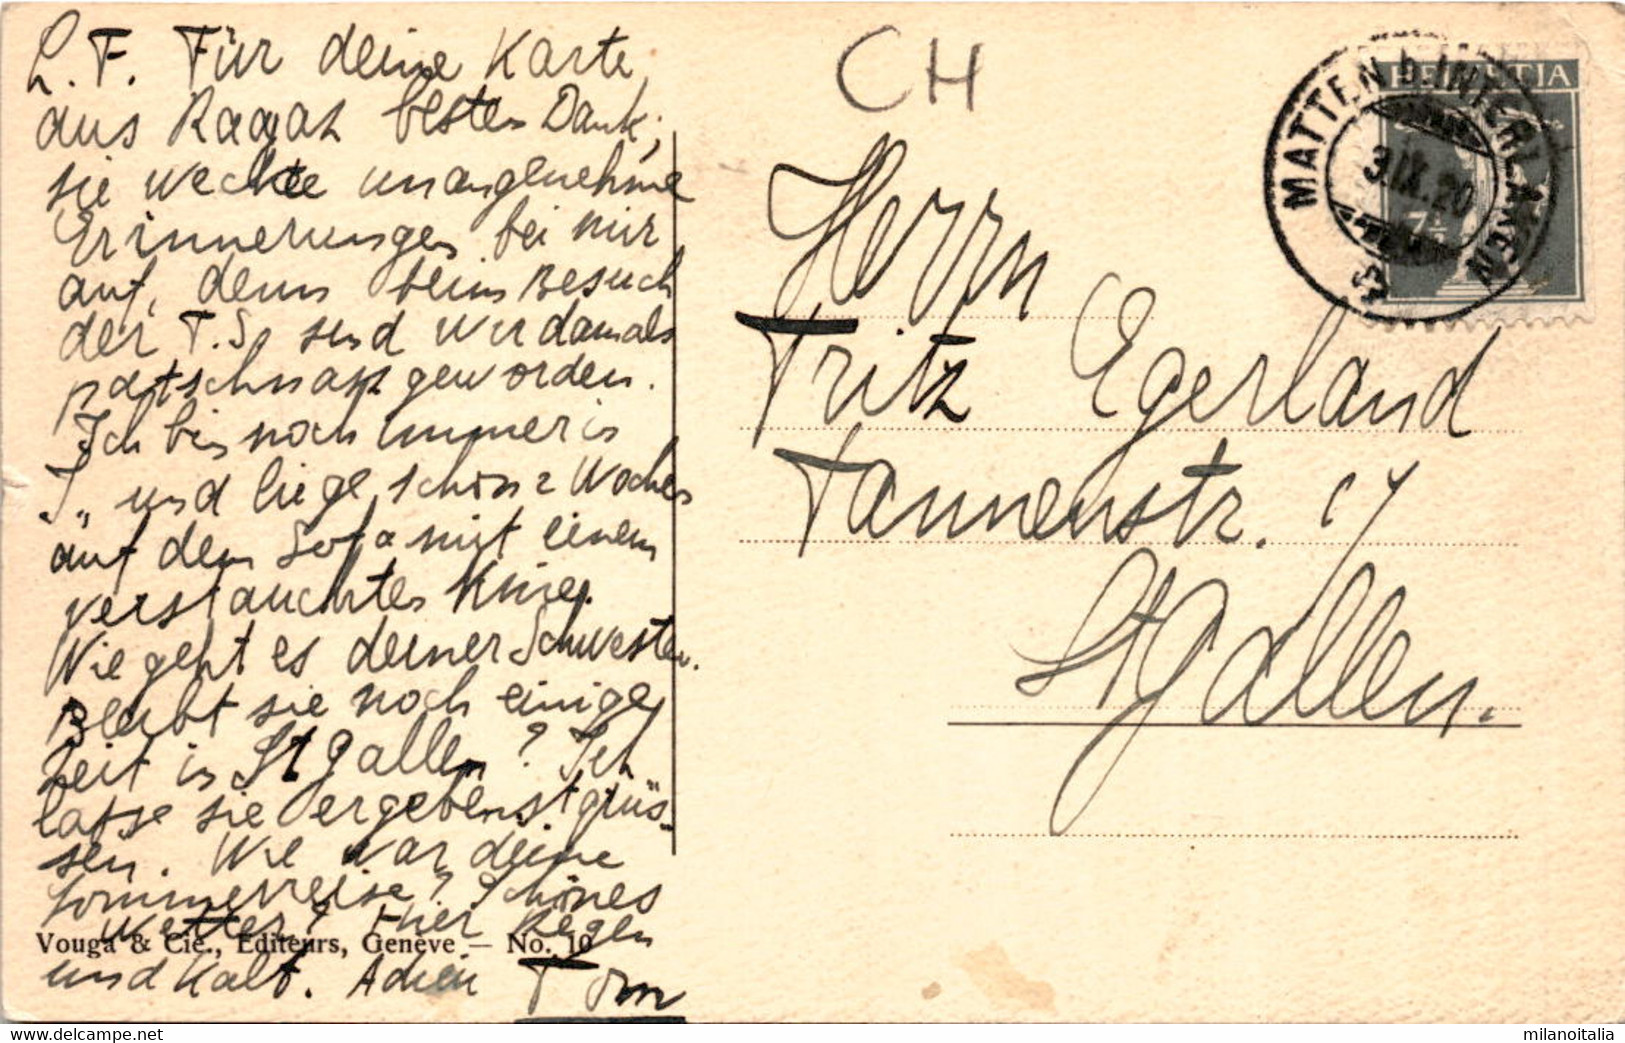 L. F. Für deine Karte
aus Ragaz besten Dank;
sie weckte unangenehme
Erinnerungen bei mir
auf, denn beim Besuch
der T.S. sind wir damals
patschnass geworden.
Ich bin noch immer in
J., und liege schon 2 Wochen
auf dem Sofa mit einem
verstauchten Knie.
Wie geht es deiner Schwester.
Bleibt sie noch einige
Zeit in St Gallen? Ich
lasse sie ergebenst grüs-
sen. Wie war deine
Sommerreise? Schönes
Wetter? Hier Regen
und Kalt. Adieu Tom
Vouga & Cie., Editeurs, Genève — No. 10
CH
HELVETIA
7½
MATTEN b. INTERLAKEN
3.IX.20
Herrn
Fritz Egerland
Tannenstr. 17
St Gallen.
milanoitalia